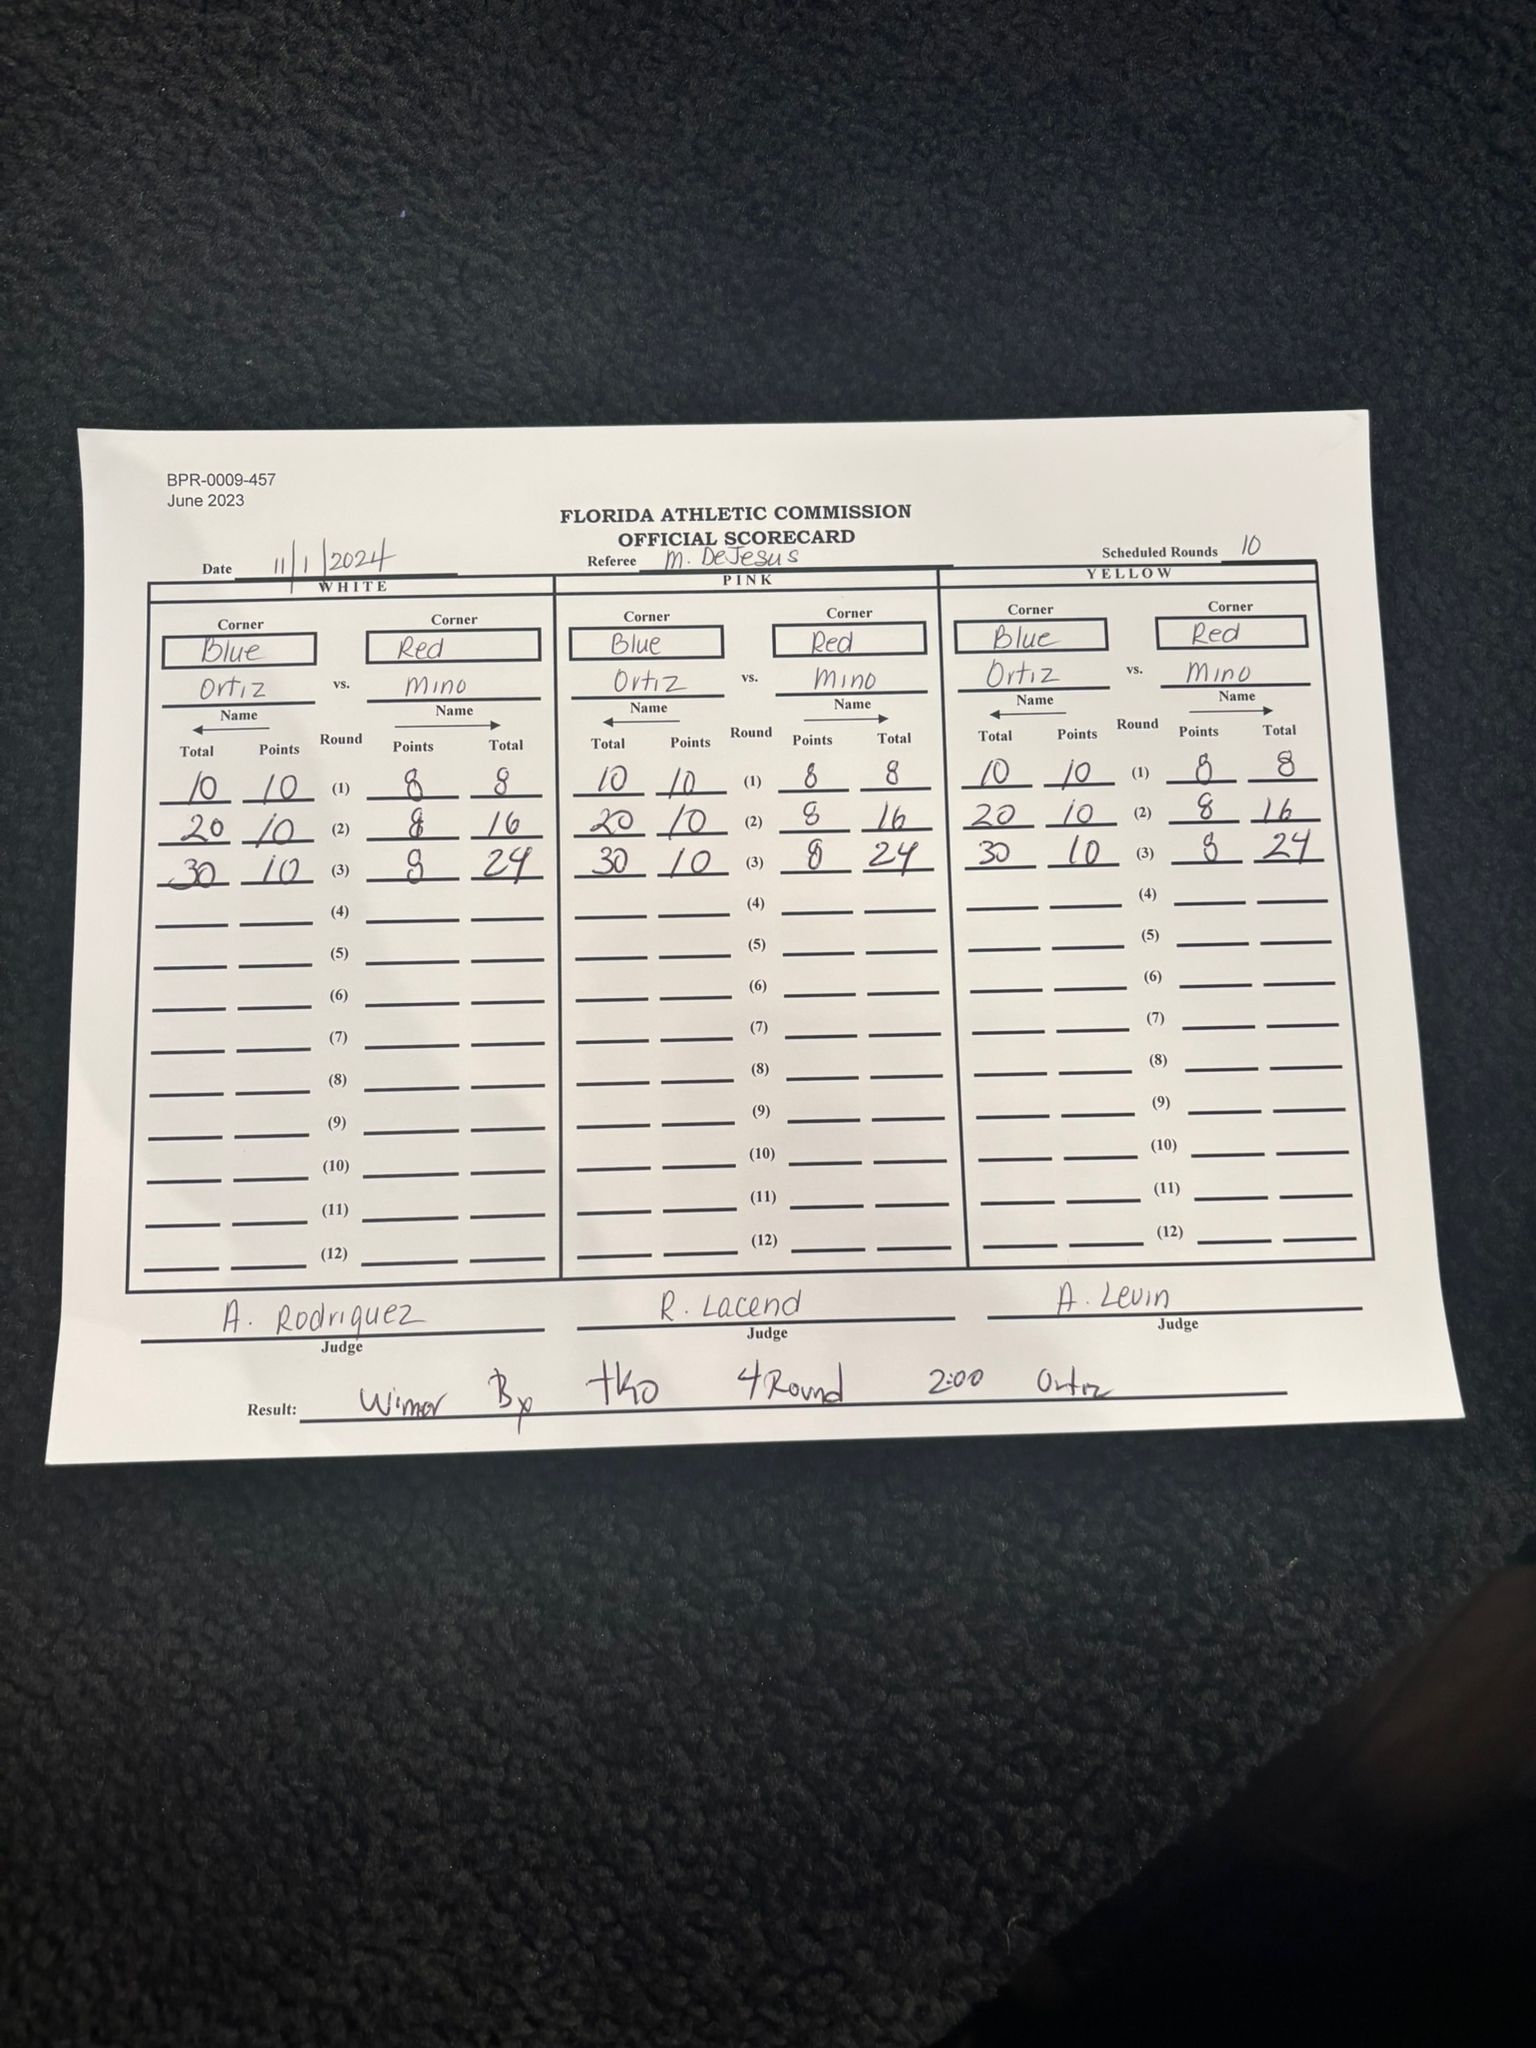 BPR-0009-457
June 2023
FLORIDA ATHLETIC COMMISSION
OFFICIAL SCORECARD
Date 11/1/2024 Referee M. DeJesus Scheduled Rounds 10
WHITE PINK YELLOW
Corner Corner Corner Corner Corner Corner
Blue Red Blue Red Blue Red
Ortiz vs. Mino Ortiz vs. Mino Ortiz vs. Mino
Name Name Name Name Name Name
Total Points Round Points Total Total Points Round Points Total Total Points Round Points Total
10 10 (1) 8 8 10 10 (1) 8 8 10 10 (1) 8 8
20 10 (2) 8 16 20 10 (2) 8 16 20 10 (2) 8 16
30 10 (3) 8 24 30 10 (3) 8 24 30 10 (3) 8 24
(4) (4) (4)
(5) (5) (5)
(6) (6) (6)
(7) (7) (7)
(8) (8) (8)
(9) (9) (9)
(10) (10) (10)
(11) (11) (11)
(12) (12) (12)
A. Rodriguez R. Lacend A. Levin
Judge Judge Judge
Result: Winner By TKO 4 Round 2:00 Ortiz